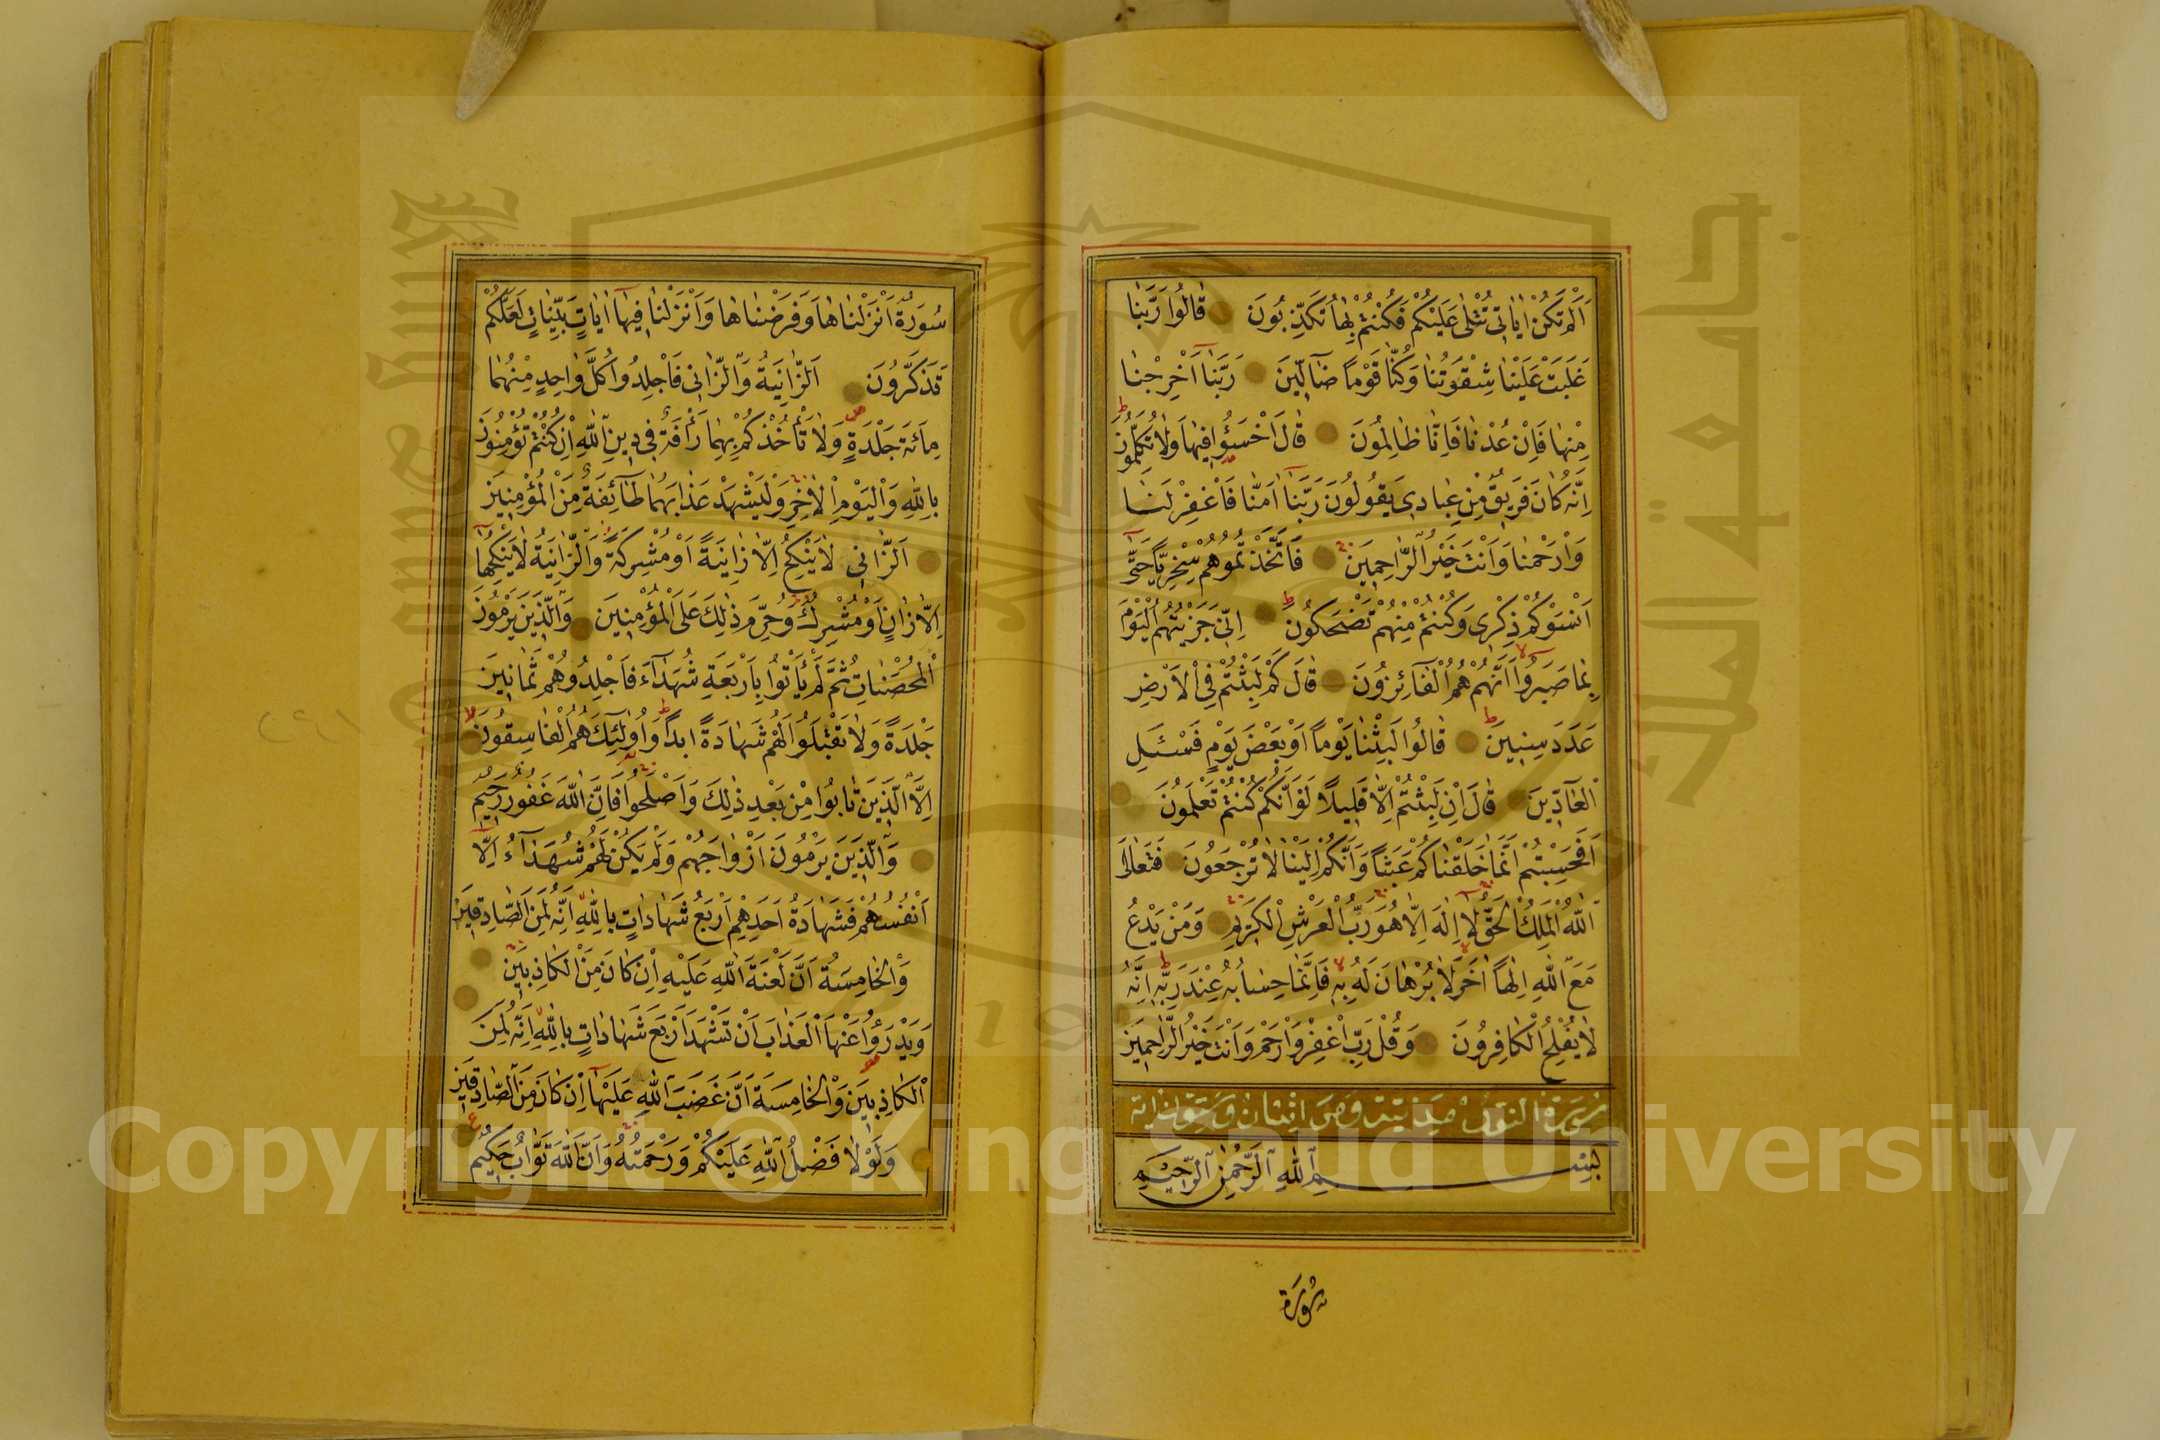 اَلَمْ تَكُنْ اٰيَاتِي تُتْلٰى عَلَيْكُمْ فَكُنْتُمْ بِهَا تُكَذِّبُونَ قَالُوا رَبَّنَا
غَلَبَتْ عَلَيْنَا شِقْوَتُنَا وَكُنَّا قَوْمًا ضَآلِّينَ رَبَّنَآ اَخْرِجْنَا
مِنْهَا فَاِنْ عُدْنَا فَاِنَّا ظَالِمُونَ قَالَ اخْسَؤُا فِيهَا وَلَا تُكَلِّمُونِ
اِنَّهُ كَانَ فَرِيقٌ مِنْ عِبَادِي يَقُولُونَ رَبَّنَآ اٰمَنَّا فَاغْفِرْ لَنَا
وَارْحَمْنَا وَاَنْتَ خَيْرُ الرَّاحِمِينَ فَاتَّخَذْتُمُوهُمْ سِخْرِيًّا حَتّٰٓى
اَنْسَوْكُمْ ذِكْرِي وَكُنْتُمْ مِنْهُمْ تَضْحَكُونَ اِنِّي جَزَيْتُهُمُ الْيَوْمَ
بِمَا صَبَرُوا اَنَّهُمْ هُمُ الْفَآئِزُونَ قَالَ كَمْ لَبِثْتُمْ فِي الْاَرْضِ
عَدَدَ سِنِينَ قَالُوا لَبِثْنَا يَوْمًا اَوْ بَعْضَ يَوْمٍ فَسْـَٔلِ
الْعَآدِّينَ قَالَ اِنْ لَبِثْتُمْ اِلَّا قَلِيلًا لَوْ اَنَّكُمْ كُنْتُمْ تَعْلَمُونَ
اَفَحَسِبْتُمْ اَنَّمَا خَلَقْنَاكُمْ عَبَثًا وَاَنَّكُمْ اِلَيْنَا لَا تُرْجَعُونَ فَتَعَالَى
اللّٰهُ الْمَلِكُ الْحَقُّ لَآ اِلٰهَ اِلَّا هُوَ رَبُّ الْعَرْشِ الْكَرِيمِ وَمَنْ يَدْعُ
مَعَ اللّٰهِ اِلٰهًا اٰخَرَ لَا بُرْهَانَ لَهُ بِهِ فَاِنَّمَا حِسَابُهُ عِنْدَ رَبِّهِ اِنَّهُ
لَا يُفْلِحُ الْكَافِرُونَ وَقُلْ رَبِّ اغْفِرْ وَارْحَمْ وَاَنْتَ خَيْرُ الرَّاحِمِينَ
سورة النور مدنية وهي اثنتان وستون اية
بِسْمِ اللّٰهِ الرَّحْمٰنِ الرَّحِيمِ
سُورَة
سُورَةٌ اَنْزَلْنَاهَا وَفَرَضْنَاهَا وَاَنْزَلْنَا فِيهَآ اٰيَاتٍ بَيِّنَاتٍ لَعَلَّكُمْ
تَذَكَّرُونَ اَلزَّانِيَةُ وَالزَّانِي فَاجْلِدُوا كُلَّ وَاحِدٍ مِنْهُمَا
مِائَةَ جَلْدَةٍ وَلَا تَأْخُذْكُمْ بِهِمَا رَأْفَةٌ فِي دِينِ اللّٰهِ اِنْ كُنْتُمْ تُؤْمِنُونَ
بِاللّٰهِ وَالْيَوْمِ الْاٰخِرِ وَلْيَشْهَدْ عَذَابَهُمَا طَآئِفَةٌ مِنَ الْمُؤْمِنِينَ
اَلزَّانِي لَا يَنْكِحُ اِلَّا زَانِيَةً اَوْ مُشْرِكَةً وَالزَّانِيَةُ لَا يَنْكِحُهَآ
اِلَّا زَانٍ اَوْ مُشْرِكٌ وَحُرِّمَ ذٰلِكَ عَلَى الْمُؤْمِنِينَ وَالَّذِينَ يَرْمُونَ
الْمُحْصَنَاتِ ثُمَّ لَمْ يَأْتُوا بِاَرْبَعَةِ شُهَدَآءَ فَاجْلِدُوهُمْ ثَمَانِينَ
جَلْدَةً وَلَا تَقْبَلُوا لَهُمْ شَهَادَةً اَبَدًا وَاُولٰٓئِكَ هُمُ الْفَاسِقُونَ
اِلَّا الَّذِينَ تَابُوا مِنْ بَعْدِ ذٰلِكَ وَاَصْلَحُوا فَاِنَّ اللّٰهَ غَفُورٌ رَحِيمٌ
وَالَّذِينَ يَرْمُونَ اَزْوَاجَهُمْ وَلَمْ يَكُنْ لَهُمْ شُهَدَآءُ اِلَّآ
اَنْفُسُهُمْ فَشَهَادَةُ اَحَدِهِمْ اَرْبَعُ شَهَادَاتٍ بِاللّٰهِ اِنَّهُ لَمِنَ الصَّادِقِينَ
وَالْخَامِسَةُ اَنَّ لَعْنَةَ اللّٰهِ عَلَيْهِ اِنْ كَانَ مِنَ الْكَاذِبِينَ
وَيَدْرَؤُا عَنْهَا الْعَذَابَ اَنْ تَشْهَدَ اَرْبَعَ شَهَادَاتٍ بِاللّٰهِ اِنَّهُ لَمِنَ
الْكَاذِبِينَ وَالْخَامِسَةَ اَنَّ غَضَبَ اللّٰهِ عَلَيْهَآ اِنْ كَانَ مِنَ الصَّادِقِينَ
وَلَوْلَا فَضْلُ اللّٰهِ عَلَيْكُمْ وَرَحْمَتُهُ وَاَنَّ اللّٰهَ تَوَّابٌ حَكِيمٌ
Copyright © King Saud University
King Saud University
جامعة الملك سعود